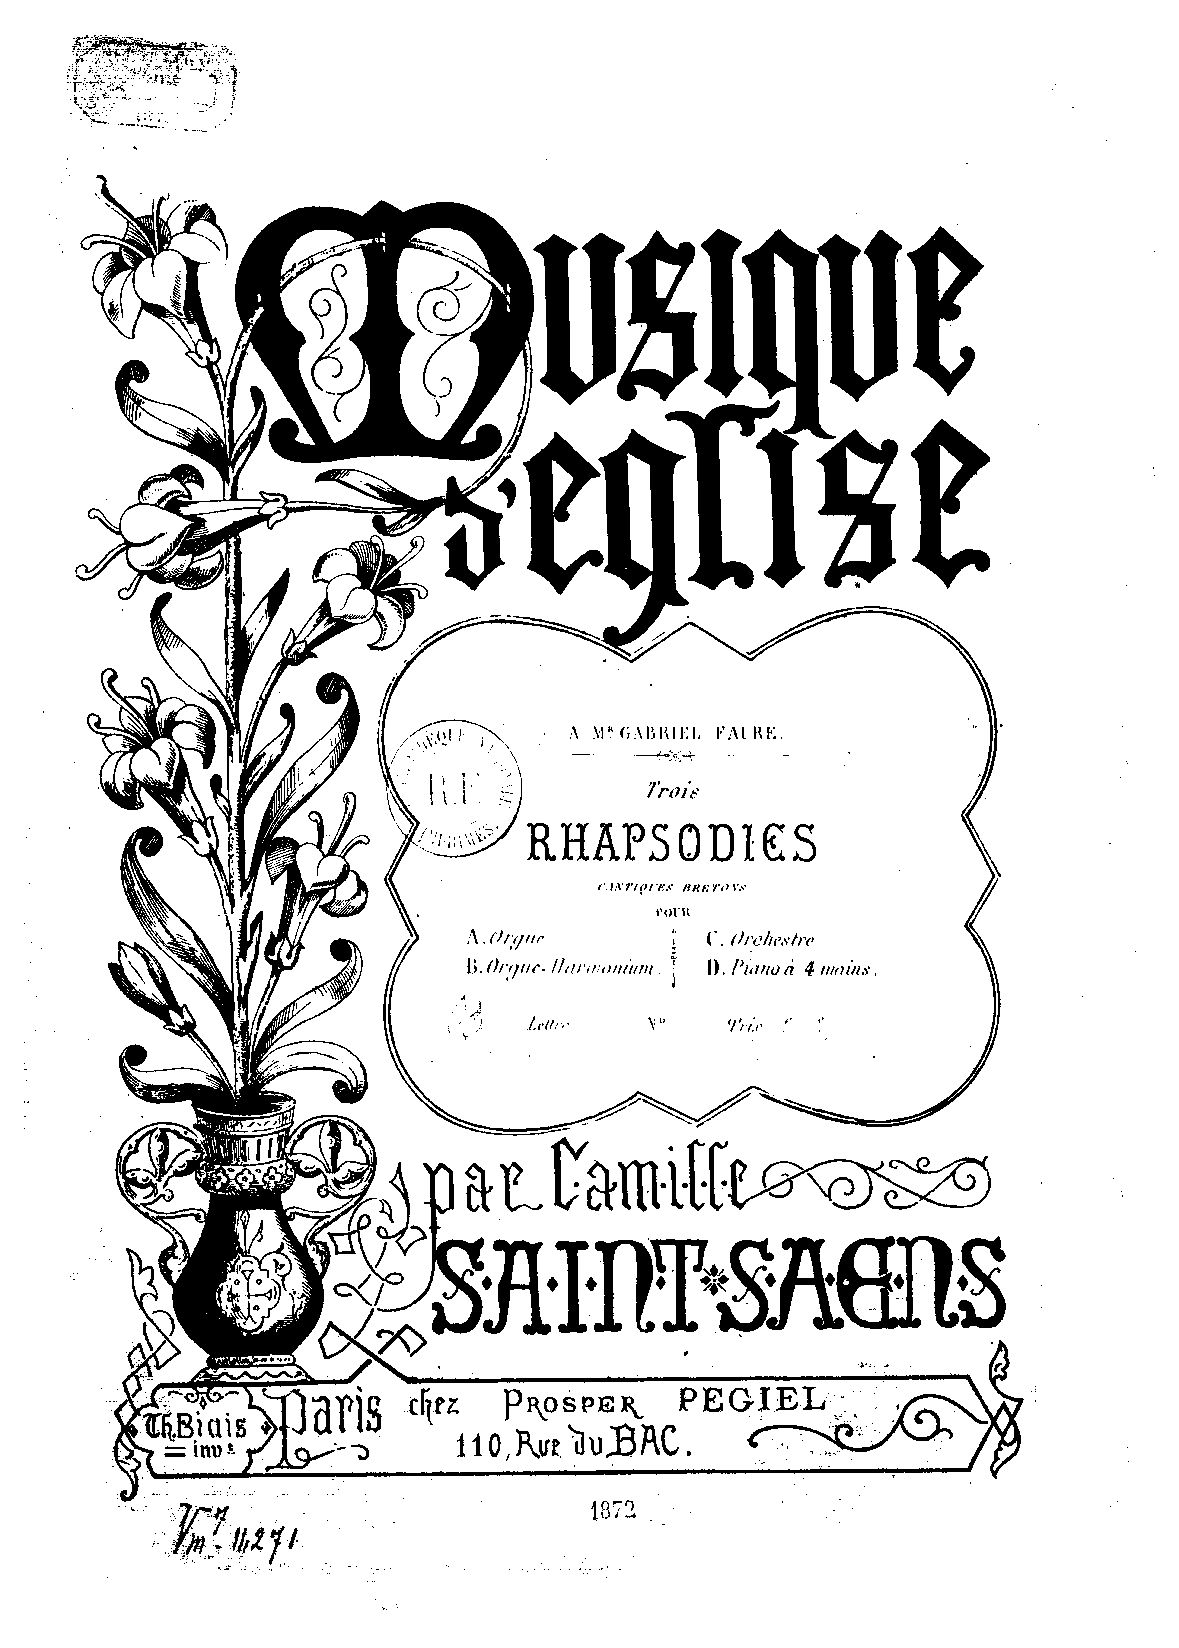 Musique
d'Eglise
A Mr GABRIEL FAURE.
Trois
RHAPSODIES
CANTIQUES BRETONS
POUR
A. Orgue
B. Orgue-Harmonium.
C. Orchestre
D. Piano à 4 mains.
R.F.
Lettre No Prix
par Camille
SAINT-SAENS
Th. Biais
inv t.
Paris chez PROSPER PEGIEL
110, Rue du BAC.
1872
Vm7 11,271